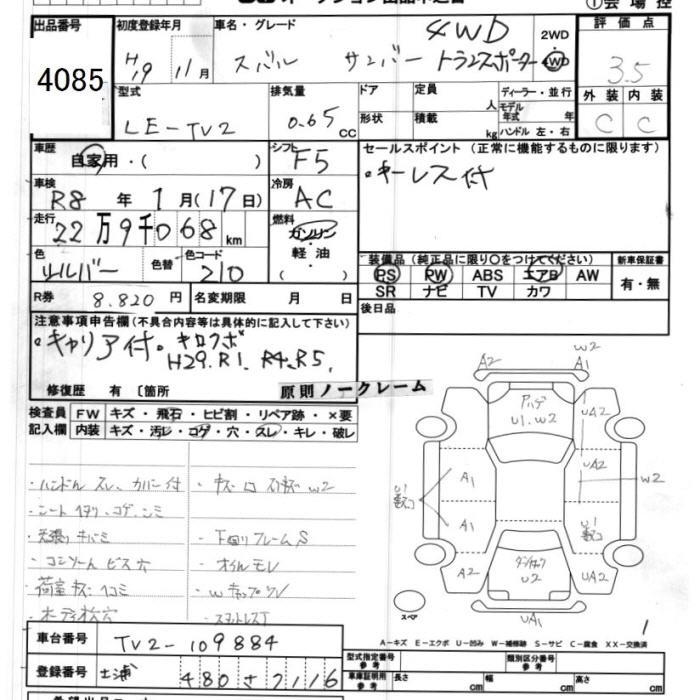 ①会場控
出品番号
4085
初度登録年月
H19 11月
車名・グレード
スバル サンバー トランスポーター 4WD
2WD
4WD
評価点
3.5
外装 内装
C C
型式
LE-TV2
排気量
0.65 CC
ドア
形状
定員 人
積載 kg
ディーラー・並行
モデル年式 年式
ハンドル 左・右
車歴
自家用・( )
シフト
F5
車検
R8 年 1月(17日)
冷房
AC
走行
22万9千068km
燃料
ガソリン・軽油
( )
色
シルバー
色替
色コード
210
R券 8.820 円
名変期限 月 日
セールスポイント(正常に機能するものに限ります)
・キーレス付
装備品(純正品に限り〇をつけてください)
PS PW ABS エアB AW
SR ナビ TV カワ
新車保証書
有・無
後日品
注意事項申告欄(不具合内容等は具体的に記入して下さい)
・キャリア付。キロクボ
H29.R1. R4.R5.
修復歴 有 〔箇所
原則ノークレーム
検査員記入欄
FW キズ・飛石・ヒビ割・リペア跡・×要
内装 キズ・汚レ・コゲ・穴・スレ・キレ・破レ
・ハンドルスレ、カバー付
・シートヘタリ、コゲ、シミ
・天張りキバミ
・コンソールビス穴
・荷室キズ・凹コミ
・ボディ桧穴
・下回りフレームS
・オイルモレ
・スタットレス丁
A2 A1 W2
U1.W2
UA2
A1
UA2
W2
A1
A2
U2
UA2
UA1
スペア
1
A-キズ E-エクボ U-凹み W-補修跡 S-サビ C-腐食 XX-交換済
車台番号
TV2-109884
登録番号
土浦 480 さ 7116
型式指定番号 参考
類別区分番号 参考
車庫証明用 参考
長さ cm 幅 cm 高さ cm